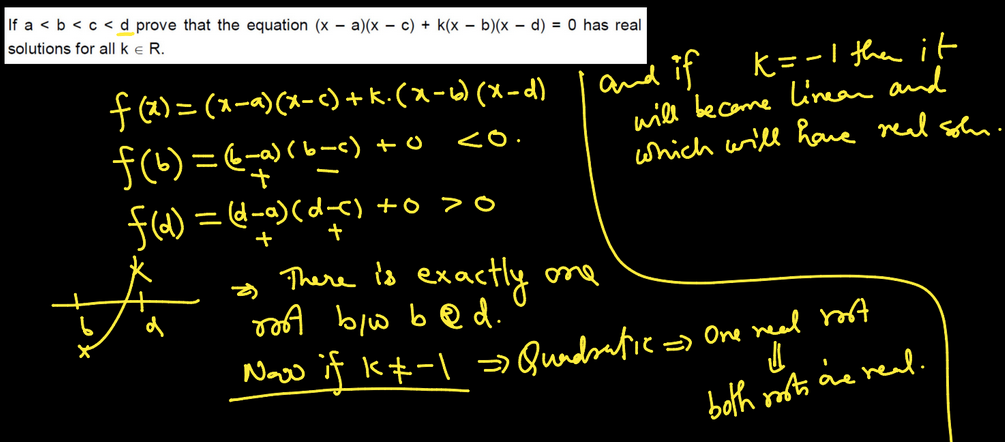 If a < b < c < d prove that the equation (x − a)(x − c) + k(x − b)(x − d) = 0 has real
solutions for all k ∈ R.
f(x) = (x-a)(x-c) + k.(x-b)(x-d)
f(b) = (b-a)(b-c) + 0 < 0.
+ −
f(d) = (d-a)(d-c) + 0 > 0
+ +
b d
⇒ There is exactly one
root b/w b & d.
Now if k ≠ -1 ⇒ Quadratic ⇒ One real root
⇓
both roots are real.
and if k = -1 then it
will become linear and
which will have real soln.